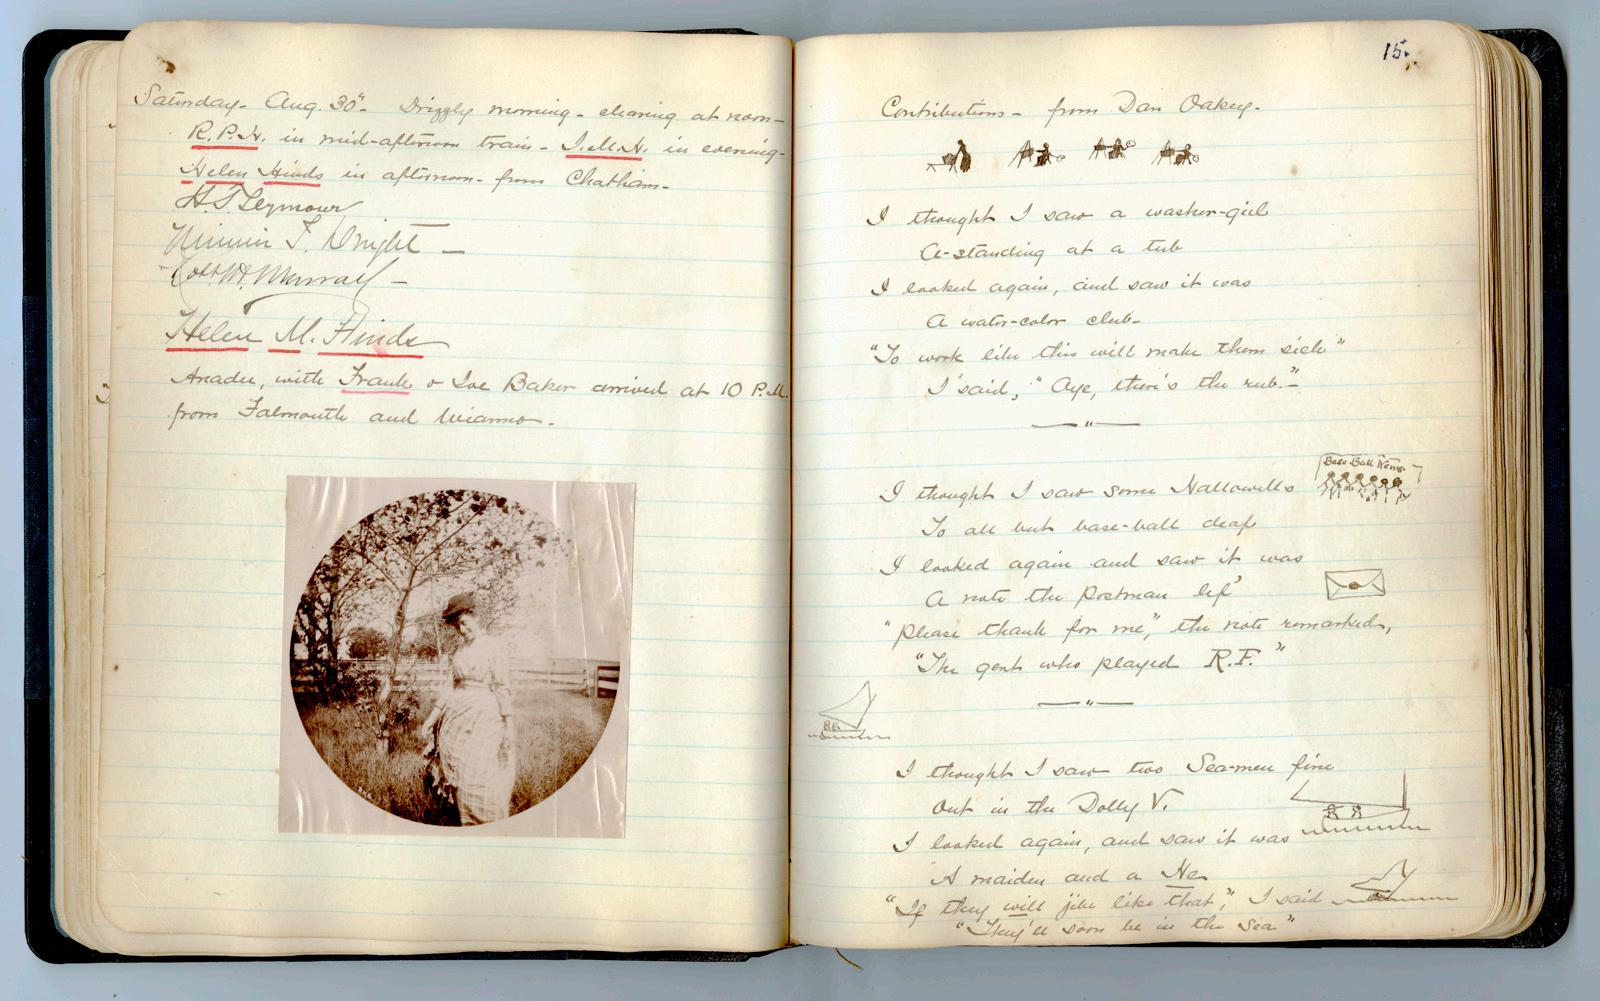 Saturday- Aug. 30"- Drizzly morning- clearing at noon-
R.P.H. in mid-afternoon train- I.M.H. in evening-
Helen Hinds in afternoon- from Chatham-
H. T. Seymour
Minnie F. Wright -
Helen M. Hinds
with Frank & Joe Baker arrived at 10 P.M.
from Falmouth and Wianno.
15.
Contributions- from Dan Oakey-
I thought I saw a washer-girl
A-standing at a tub
I looked again, and saw it was
A water-color club-
"To work like this will make them sick"
I said, "Aye, there's the rub."-
"
Base Ball News
I thought I saw some Hallowells
To all but base-ball deaf
I looked again and saw it was
A note the Postman lef'
"Please thank for me," the note remarked,
"The gent who played R.F."
"
I thought I saw two Sea-men fine
Out in the Dolly V.
I looked again, and saw it was
A maiden and a He
"If they will jibe like that," I said
"They'll soon be in the Sea"